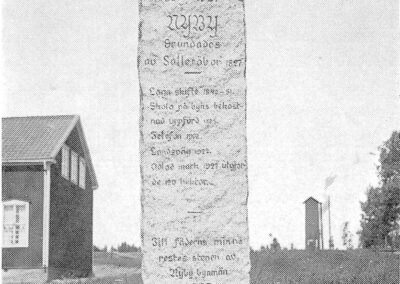 NYBY
Grundades
av Sälleråbor 1827
Laga skifte 1849-51.
Skola på byns bekost-
nad uppförd
Telefon
Landsväg 1922.
Odlad mark 1927 utgjor-
de 190 hektar.
Till fäderns minne
restes stenen av
Nyby byamän